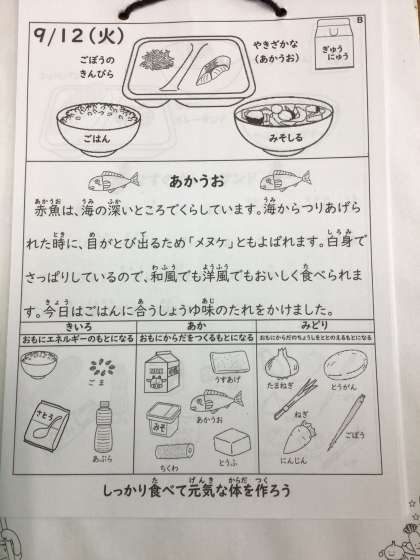 B
9/12(火)
ごぼうの
きんぴら
やきざかな
(あかうお)
ぎゅう
にゅう
ごはん
みそしる
あかうお
赤魚は、海の深いところでくらしています。海からつりあげら
れた時に、目がとび出るため「メヌケ」ともよばれます。白身で
さっぱりしているので、和風でも洋風でもおいしく食べられま
す。今日はごはんに合うしょうゆ味のたれをかけました。
きいろ
おもにエネルギーのもとになる
ごま
さとう
あぶら
あか
おもにからだをつくるもとになる
うすあげ
みそ
あかうお
ちくわ
とうふ
みどり
おもにからだのちょうしをととのえるもとになる
たまねぎ
とうがん
ねぎ
ごぼう
にんじん
しっかり食べて元気な体を作ろう